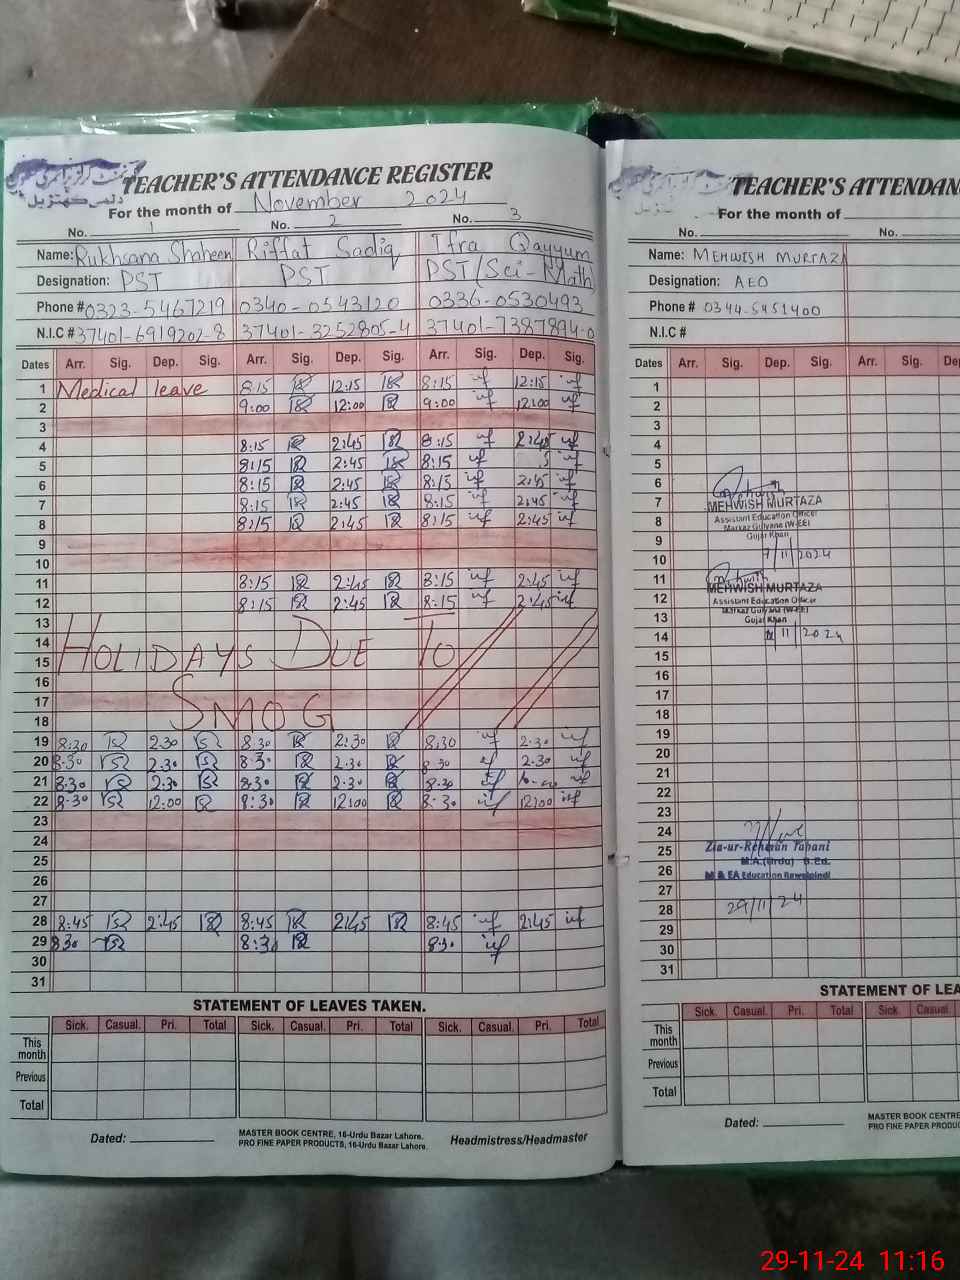 TEACHER'S ATTENDANCE REGISTER
For the month of November 2024
No. 1 No. 2 No. 3
Name: Rukhsana Shaheen Riffat Sadiq Ifra Qayyum
Designation: PST PST PST (Sci-Math)
Phone # 0323-5467219 0340-0543120 0336-0530493
N.I.C # 37401-6919202-8 37401-3252805-4 37401-7387894-0
Dates Arr. Sig. Dep. Sig. Arr. Sig. Dep. Sig. Arr. Sig. Dep. Sig.
1 Medical leave 8:15 12:15 8:15 12:15
2 9:00 12:00 9:00 12:00
3
4 8:15 2:45 8:15 2:45
5 8:15 2:45 8:15
6 8:15 2:45 8:15 2:45
7 8:15 2:45 8:15 2:45
8 8:15 2:45 8:15 2:45
9
10
11 8:15 2:45 8:15 2:45
12 8:15 2:45 8:15 2:45
13
14 HOLIDAYS DUE TO
15
16
17 SMOG
18
19 8:30 2:30 8:30 2:30 8:30 2:30
20 8:30 2:30 8:30 2:30 8:30 2:30
21 8:30 2:30 8:30 2:30 8:30
22 8:30 12:00 8:30 12:00 8:30 12:00
23
24
25
26
27
28 8:45 2:45 8:45 2:45 8:45 2:45
29 8:30 8:30 8:30
30
31
STATEMENT OF LEAVES TAKEN.
Sick. Casual. Pri. Total Sick. Casual. Pri. Total Sick. Casual. Pri. Total
This month
Previous
Total
Dated:
MASTER BOOK CENTRE, 16-Urdu Bazar Lahore.
PRO FINE PAPER PRODUCTS, 16-Urdu Bazar Lahore.
Headmistress/Headmaster
TEACHER'S ATTENDAN
For the month of
No. No.
Name: MEHWISH MURTAZA
Designation: AEO
Phone # 0344-5451400
N.I.C #
Dates Arr. Sig. Dep. Sig. Arr. Sig. Dep
1
2
3
4
5
6
7 MEHWISH MURTAZA
8 Assistant Education Officer
Markaz Gulyana (W-EE)
9 Gujar Khan
10 7/11/2024
11 MEHWISH MURTAZA
12 Assistant Education Officer
Markaz Gulyana (W-EE)
13 Gujar Khan
14 11 2024
15
16
17
18
19
20
21
22
23
24
25 Zia-ur-Rehman Tahani
M.A.(Urdu) B.Ed.
26 M & EA Education Rawalpindi
27
28 29/11/24
29
30
31
STATEMENT OF LEA
Sick. Casual. Pri. Total Sick. Casual
This month
Previous
Total
Dated:
MASTER BOOK CENTRE
PRO FINE PAPER PRODUC
29-11-24 11:16